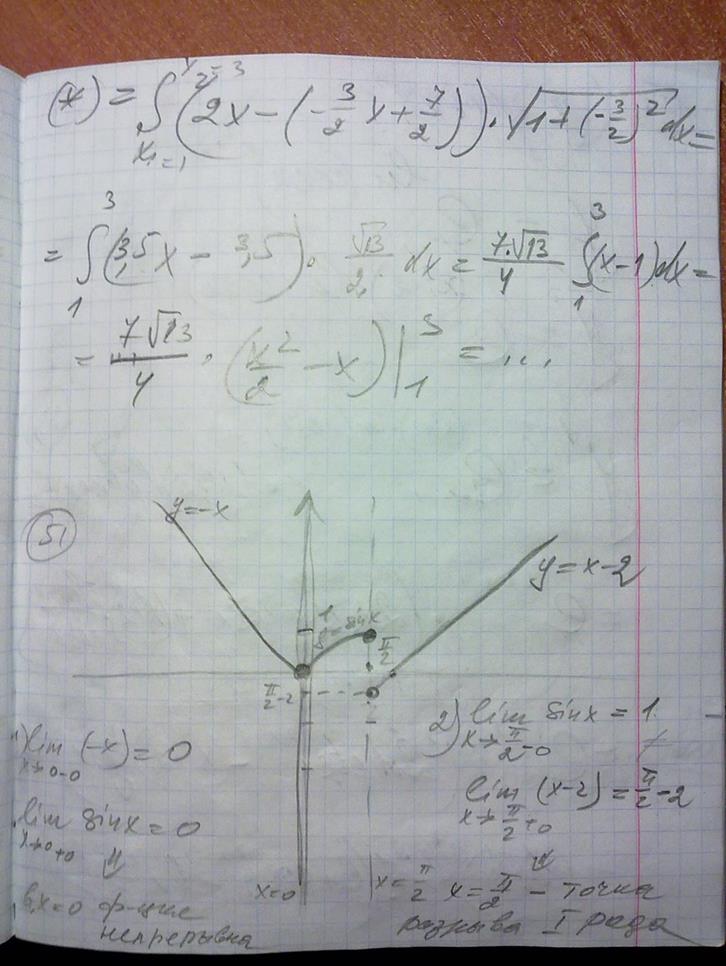 (*) = ∫_{x₁=1}^{x₂=3} (2x − (−3/2 x + 7/2)) · √(1 + (−3/2)²) dx =
= ∫_1^3 (3,5x − 3,5) · √13/2 dx = 7·√13/4 ∫_1^3 (x−1) dx =
= 7√13/4 · (x²/2 − x) |_1^3 = ...
51
y=−x
y=x−2
1
y=sinx
π/2
π/2−2
1) lim_{x→0−0} (−x) = 0
lim_{x→0+0} sinx = 0
⇓
в x=0 ф-ция
непрерывна
x=0
x=π/2
2) lim_{x→π/2−0} sinx = 1
≠
lim_{x→π/2+0} (x−2) = π/2−2
⇓
x=π/2 − точка
разрыва I рода